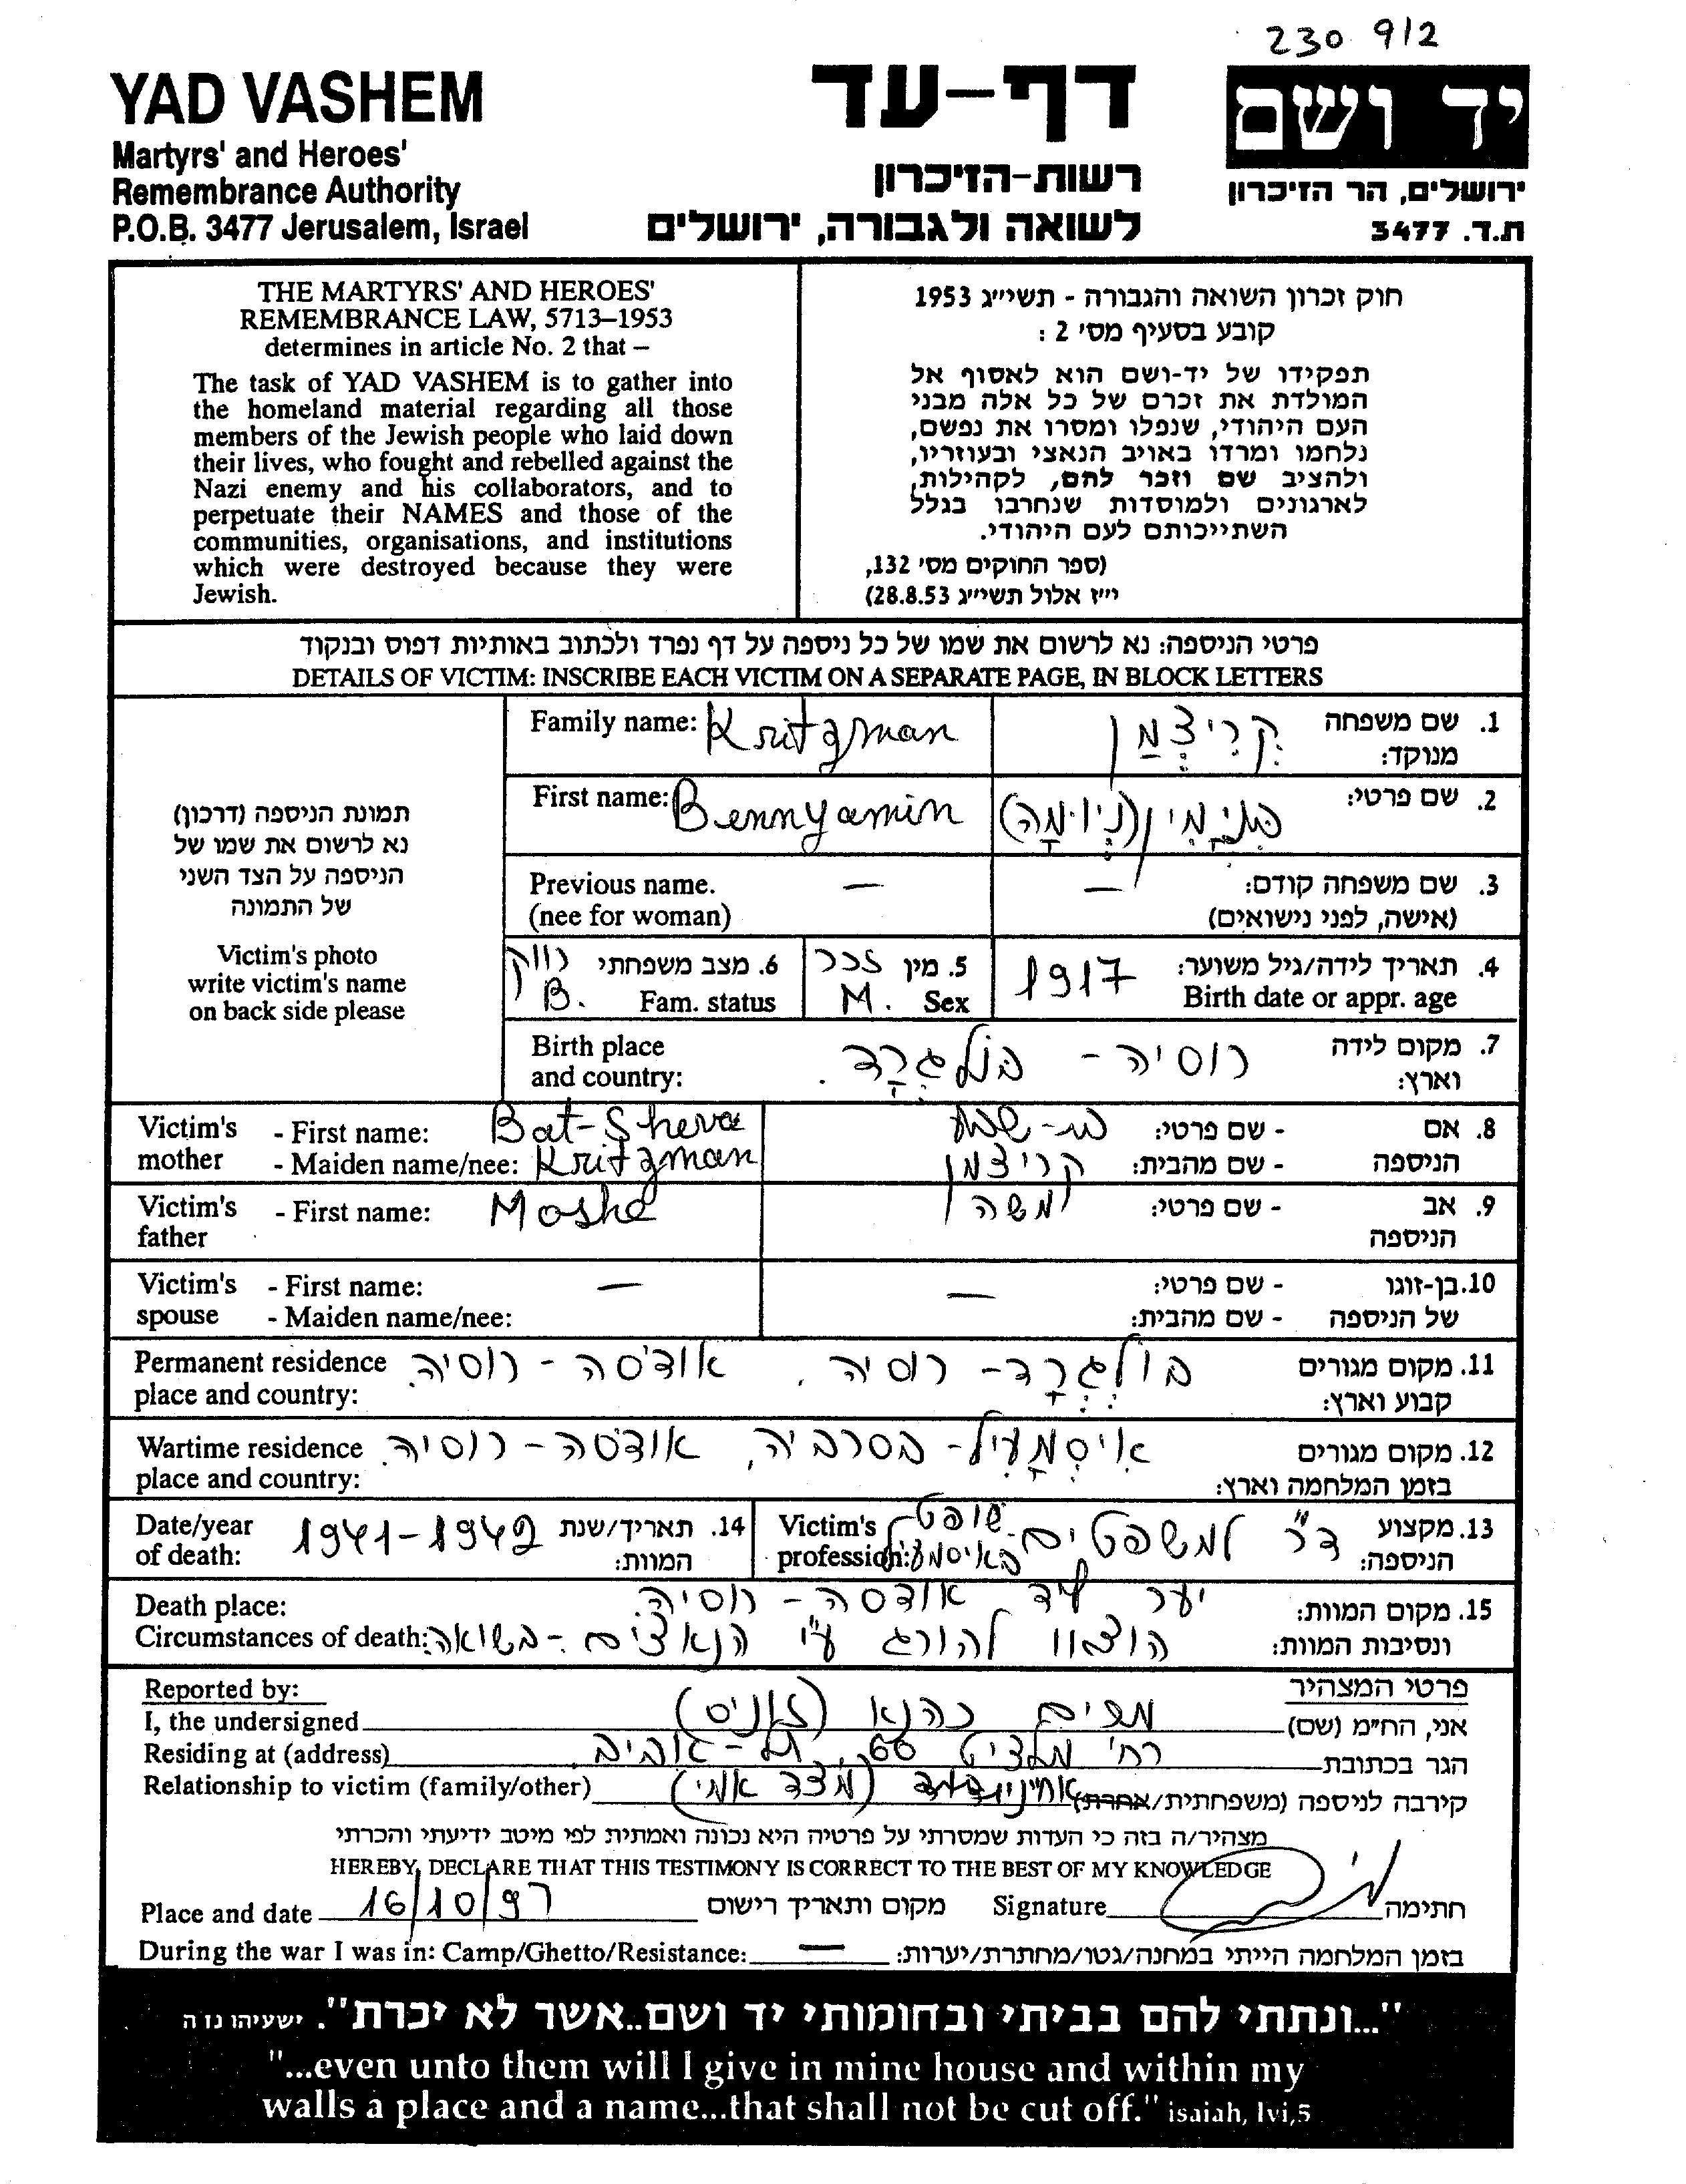 230 912
YAD VASHEM
Martyrs' and Heroes'
Remembrance Authority
P.O.B. 3477 Jerusalem, Israel
דף-עד
רשות-הזיכרון
לשואה ולגבורה, ירושלים
יד ושם
ירושלים, הר הזיכרון
ת.ד. 3477
THE MARTYRS' AND HEROES'
REMEMBRANCE LAW, 5713–1953
determines in article No. 2 that –
The task of YAD VASHEM is to gather into
the homeland material regarding all those
members of the Jewish people who laid down
their lives, who fought and rebelled against the
Nazi enemy and his collaborators, and to
perpetuate their NAMES and those of the
communities, organisations, and institutions
which were destroyed because they were
Jewish.
חוק זכרון השואה והגבורה - תשי״ג 1953
קובע בסעיף מס׳ 2 :
תפקידו של יד-ושם הוא לאסוף אל
המולדת את זכרם של כל אלה מבני
העם היהודי, שנפלו ומסרו את נפשם,
נלחמו ומרדו באויב הנאצי ובעוזריו,
ולהציב שם וזכר להם, לקהילות,
לארגונים ולמוסדות שנחרבו בגלל
השתייכותם לעם היהודי.
(ספר החוקים מס׳ 132,
י״ז אלול תשי״ג 28.8.53)
פרטי הניספה: נא לרשום את שמו של כל ניספה על דף נפרד ולכתוב באותיות דפוס ובנקוד
DETAILS OF VICTIM: INSCRIBE EACH VICTIM ON A SEPARATE PAGE, IN BLOCK LETTERS
תמונת הניספה (דרכון)
נא לרשום את שמו של
הניספה על הצד השני
של התמונה
Victim's photo
write victim's name
on back side please
Family name: Kritzman
1. שם משפחה קריצמן
מנוקד:
First name: Bennyamin
2. שם פרטי: בנימין (ניומה)
Previous name. —
(nee for woman)
3. שם משפחה קודם: —
(אישה, לפני נישואים)
4. תאריך לידה/גיל משוער: 1917
Birth date or appr. age
5. מין זכר
M. Sex
6. מצב משפחתי רווק
B. Fam. status
Birth place
and country:
7. מקום לידה רוסיה - בולגרד.
וארץ:
Victim's - First name: Bat-Sheva
mother - Maiden name/nee: Kritzman
8. אם - שם פרטי: בת-שבע
הניספה - שם מהבית: קריצמן
Victim's - First name: Moshe
father
9. אב - שם פרטי: משה
הניספה
Victim's - First name: —
spouse - Maiden name/nee:
10. בן-זוגו - שם פרטי: —
של הניספה - שם מהבית:
Permanent residence
place and country:
11. מקום מגורים בולגרד - רוסיה, אודסה - רוסיה.
קבוע וארץ:
Wartime residence
place and country:
12. מקום מגורים איסמעיל - בסרביה, אודסה - רוסיה.
בזמן המלחמה וארץ:
Date/year
of death:
14. תאריך/שנת 1941-1942
המוות:
Victim's
profession:
13. מקצוע ד״ר למשפטים - שופט
הניספה: באיסמעיל
Death place:
Circumstances of death:
15. מקום המוות: יער ליד אודסה - רוסיה.
ונסיבות המוות: הוצאו להורג ע״י הנאצים - בשואה.
Reported by:
פרטי המצהיר
I, the undersigned
אני, הח״מ (שם) מרים כהנא (זוניס)
Residing at (address)
הגר בכתובת רח׳ 66, תל-אביב.
Relationship to victim (family/other)
קירבה לניספה (משפחתית/אחרת) (מצד אמי)
מצהיר/ה בזה כי העדות שמסרתי על פרטיה היא נכונה ואמתית לפי מיטב ידיעתי והכרתי
HEREBY DECLARE THAT THIS TESTIMONY IS CORRECT TO THE BEST OF MY KNOWLEDGE
Place and date 16/10/97 מקום ותאריך רישום Signature חתימה
During the war I was in: Camp/Ghetto/Resistance: — בזמן המלחמה הייתי במחנה/גטו/מחתרת/יערות:
"...ונתתי להם בביתי ובחומותי יד ושם..אשר לא יכרת". ישעיהו נו ה
"...even unto them will I give in mine house and within my
walls a place and a name...that shall not be cut off." isaiah, lvi,5